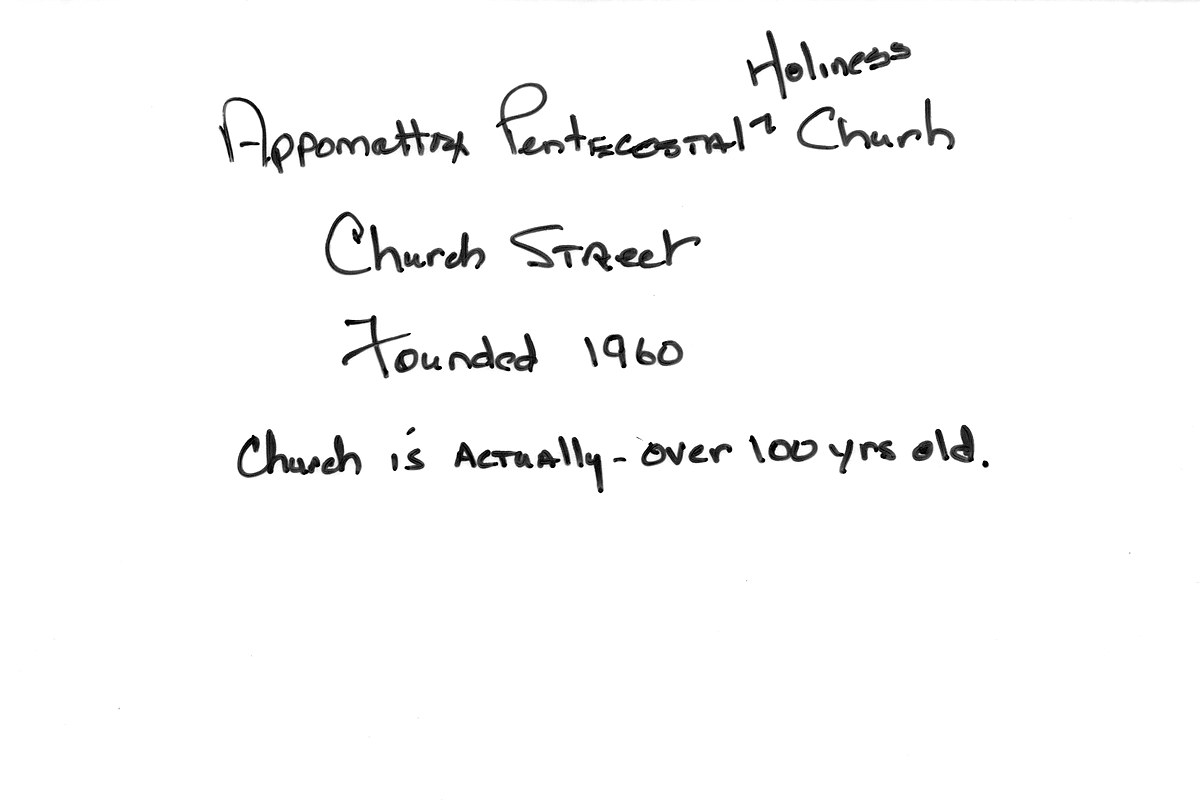 Holiness
Appomattox Pentecostal ^ Church
Church Street
Founded 1960
Church is Actually - over 100 yrs old.